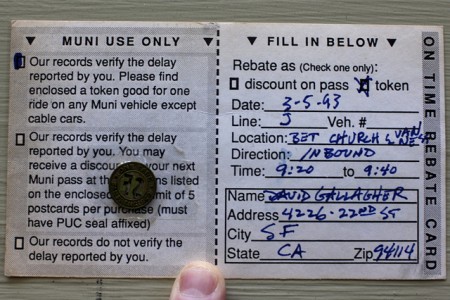 ▼ MUNI USE ONLY ▼
Our records verify the delay
reported by you. Please find
enclosed a token good for one
ride on any Muni vehicle except
cable cars.
Our records verify the delay
reported by you. You may
receive a discount your next
Muni pass at the listed
on the enclosed limit of 5
postcards per purchase (must
have PUC seal affixed)
Our records do not verify the
delay reported by you.
▼ FILL IN BELOW ▼
Rebate as (Check one only):
discount on pass token
Date: 3-5-93
Line: J Veh. #
Location: BET CHURCH & VAN NESS
Direction: INBOUND
Time: 9:20 to 9:40
Name DAVID GALLAGHER
Address 4226-22ND ST
City SF
State CA Zip 94114
ON TIME REBATE CARD